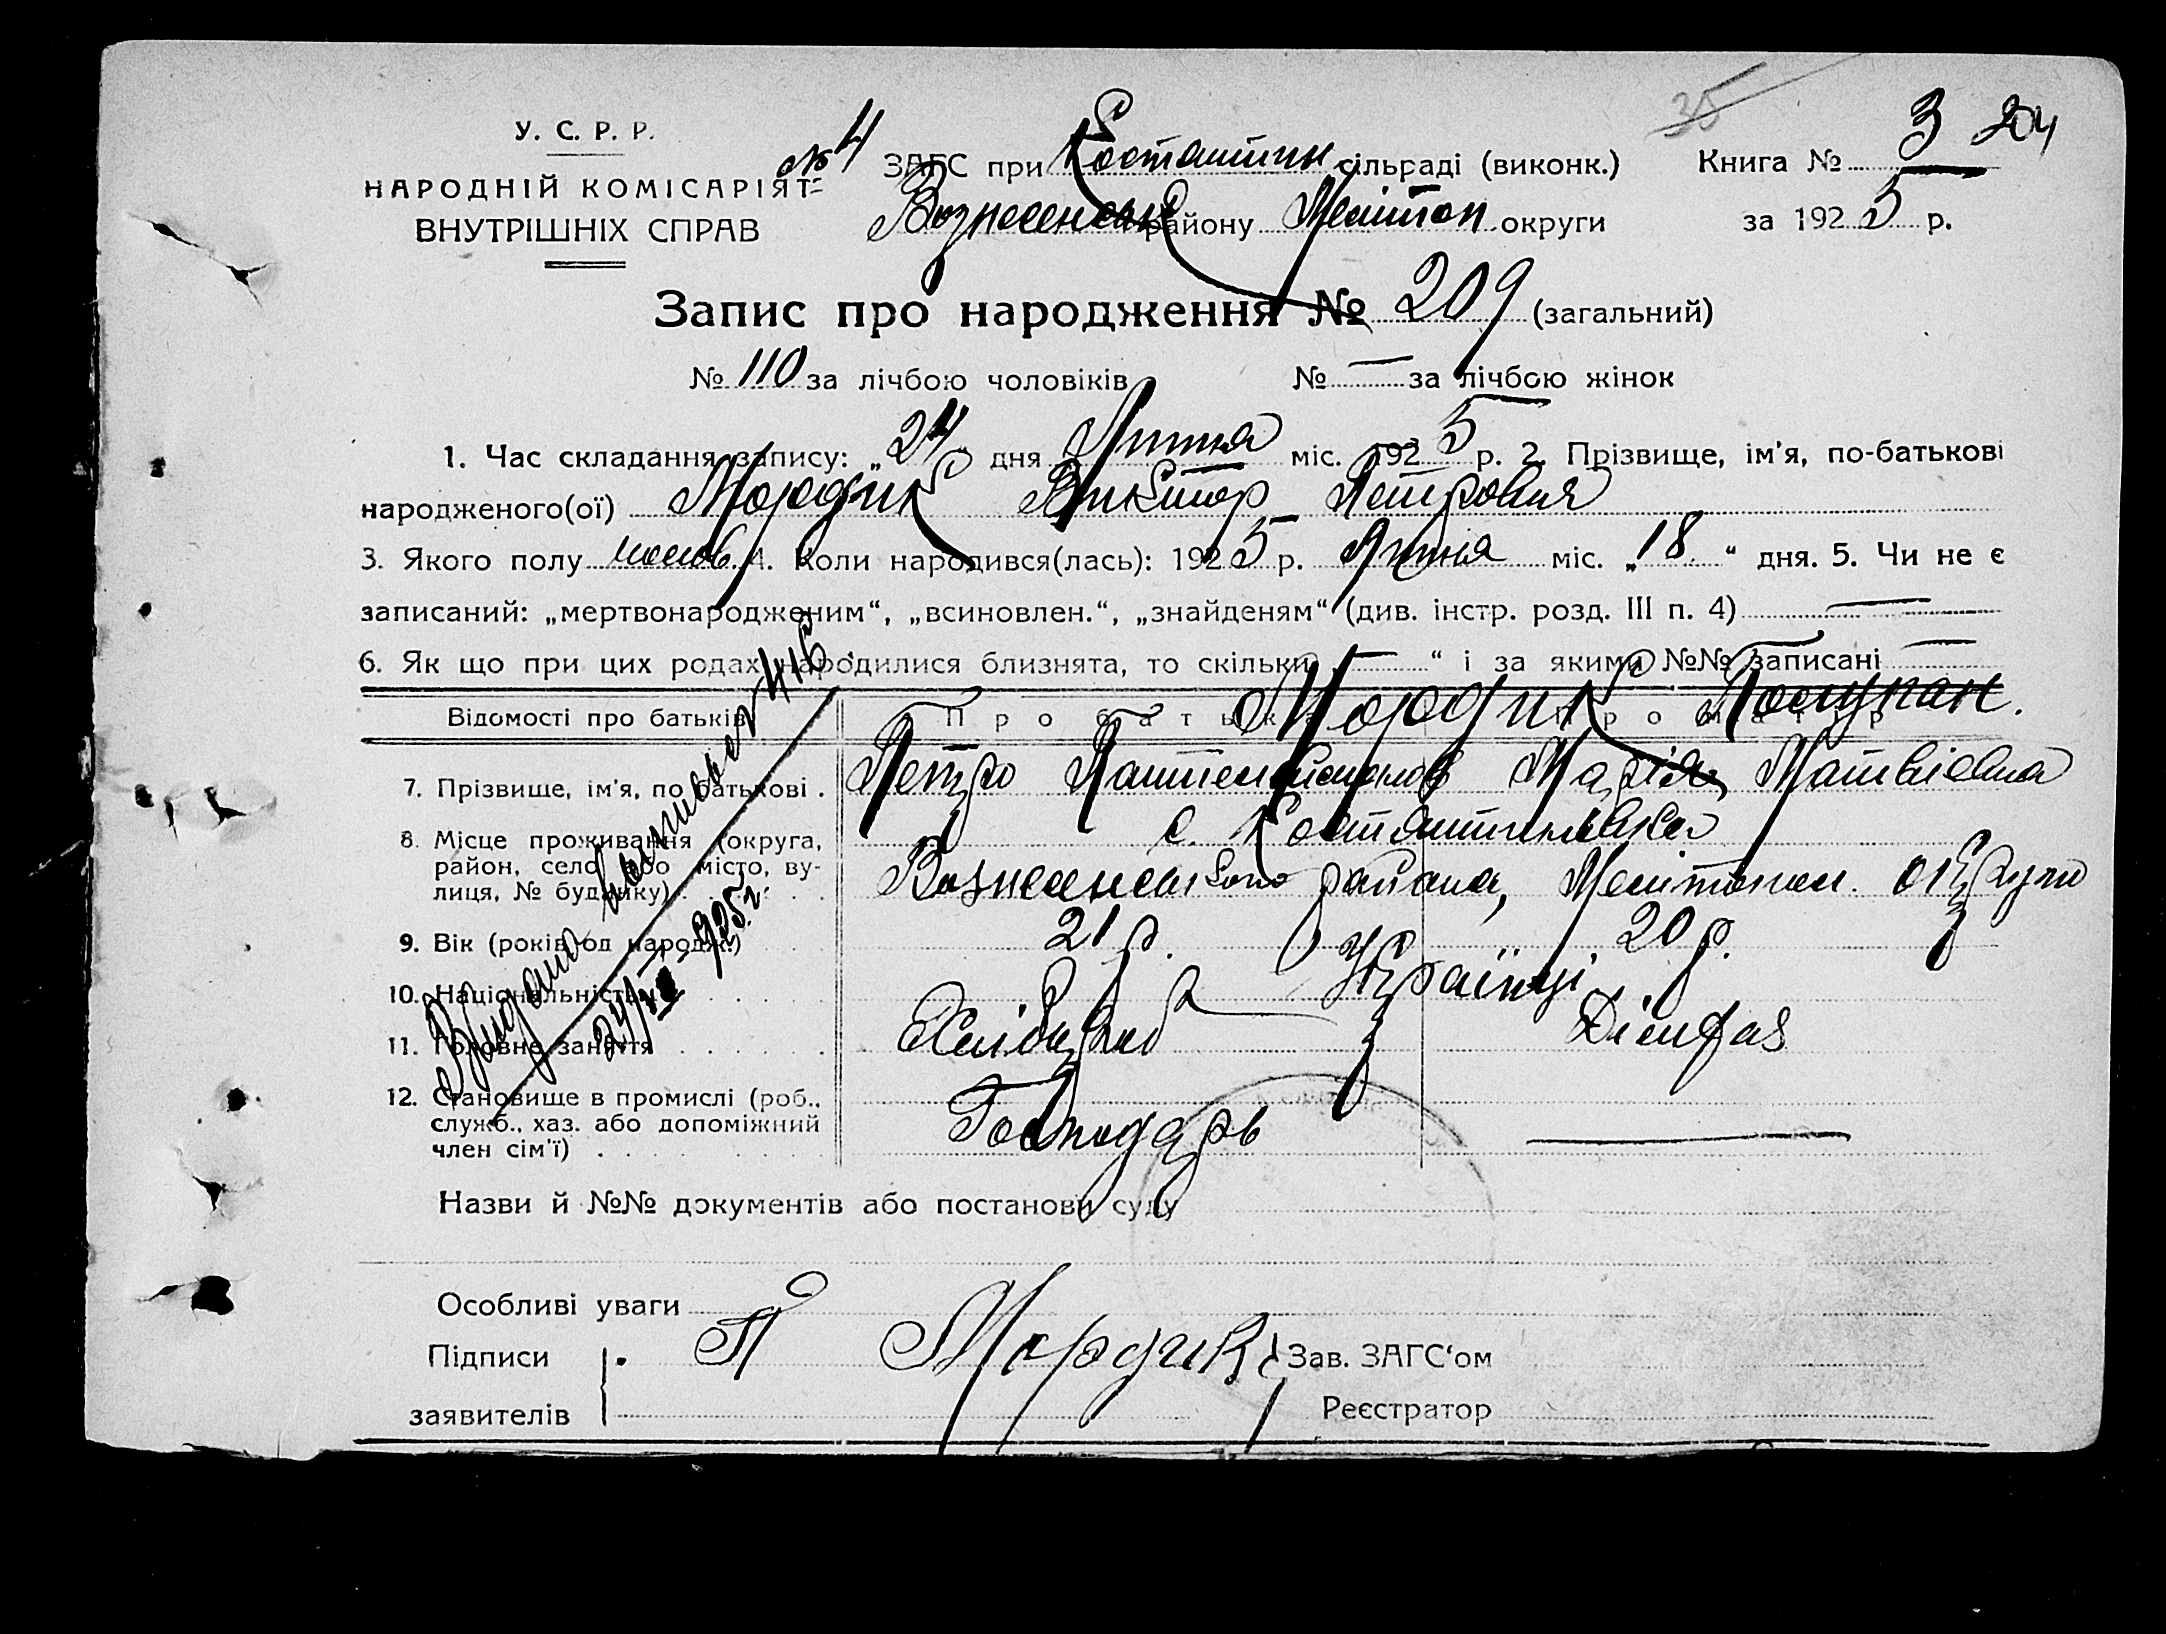 35 3 204
У. С. Р. Р. №4 ЗАГС при Костянтин сільраді (виконк.) Книга №
НАРОДНІЙ КОМІСАРІЯТ Вознесенськ району Мелітоп округи за 1925 р.
ВНУТРІШНІХ СПРАВ
Запис про народження № 209 (загальний)
№ 110 за лічбою чоловіків № — за лічбою жінок
1. Час складання запису: „24" дня Липня міс. 1925 р. 2. Прізвище, ім'я, по-батькові
народженого(ої) Мордик Виктор Петрович
3. Якого полу чолов. 4. Коли народився(лась): 1925 р. Липня міс. „18." дня. 5. Чи не є
записаний: „мертвонародженим", „всиновлен.", „знайденям" (див. інстр. розд. III п. 4) —
6. Як що при цих родах народилися близнята, то скільки — " і за якими №№ записані —
Відомості про батьків Про батька Про матір
Мордик
7. Прізвище, ім'я, по батькові . Петро Марія Матвієвна
8. Місце проживання (округа, с. Костянтинівка
район, село або місто, ву- Вознесенського района, Мелітопол. округи
лиця, № будинку)
9. Вік (років од народж.) 21 р. 20 р.
10. Національність Українці
11. Головне заняття Хлібороб
12. Становище в промислі (роб.,
служб., хаз. або допоміжний Господарь —
член сім'ї)
Видано 416
24/VII 925 г.
Назви й №№ документів або постанови суду
Особливі уваги
Підписи П Мордик Зав. ЗАГС'ом
заявителів Реєстратор